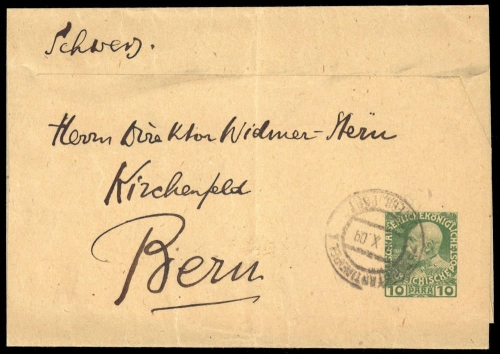 Schweiz.
Herrn Direktor Widmer-Stern
Kirchenfeld
Bern
KAISERLICHEKÖNIGLICHE
ÖSTERREICHISCHE POST
10 PARA 10
X.09